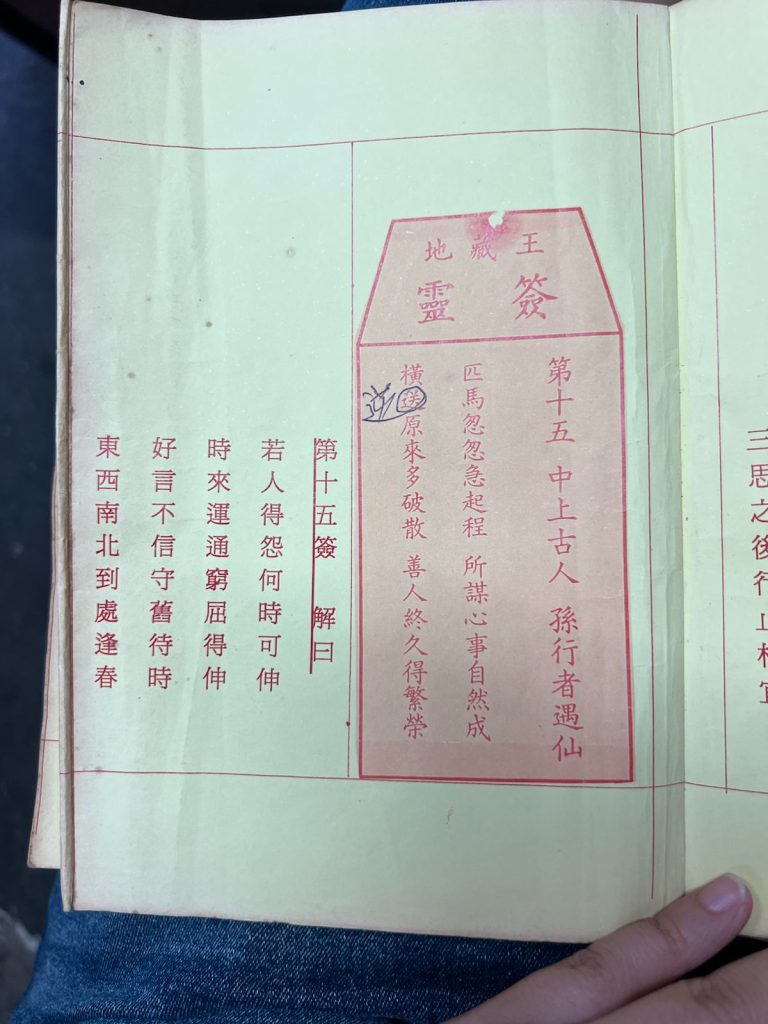 三思之後行止相宜
地藏王
靈簽
第十五 中上古人 孫行者遇仙
匹馬忽忽急起程 所謀心事自然成
橫送原來多破散 善人終久得繁榮
逆
第十五簽 解曰
若人得怨何時可伸
時來運通窮屈得伸
好言不信守舊待時
東西南北到處逢春